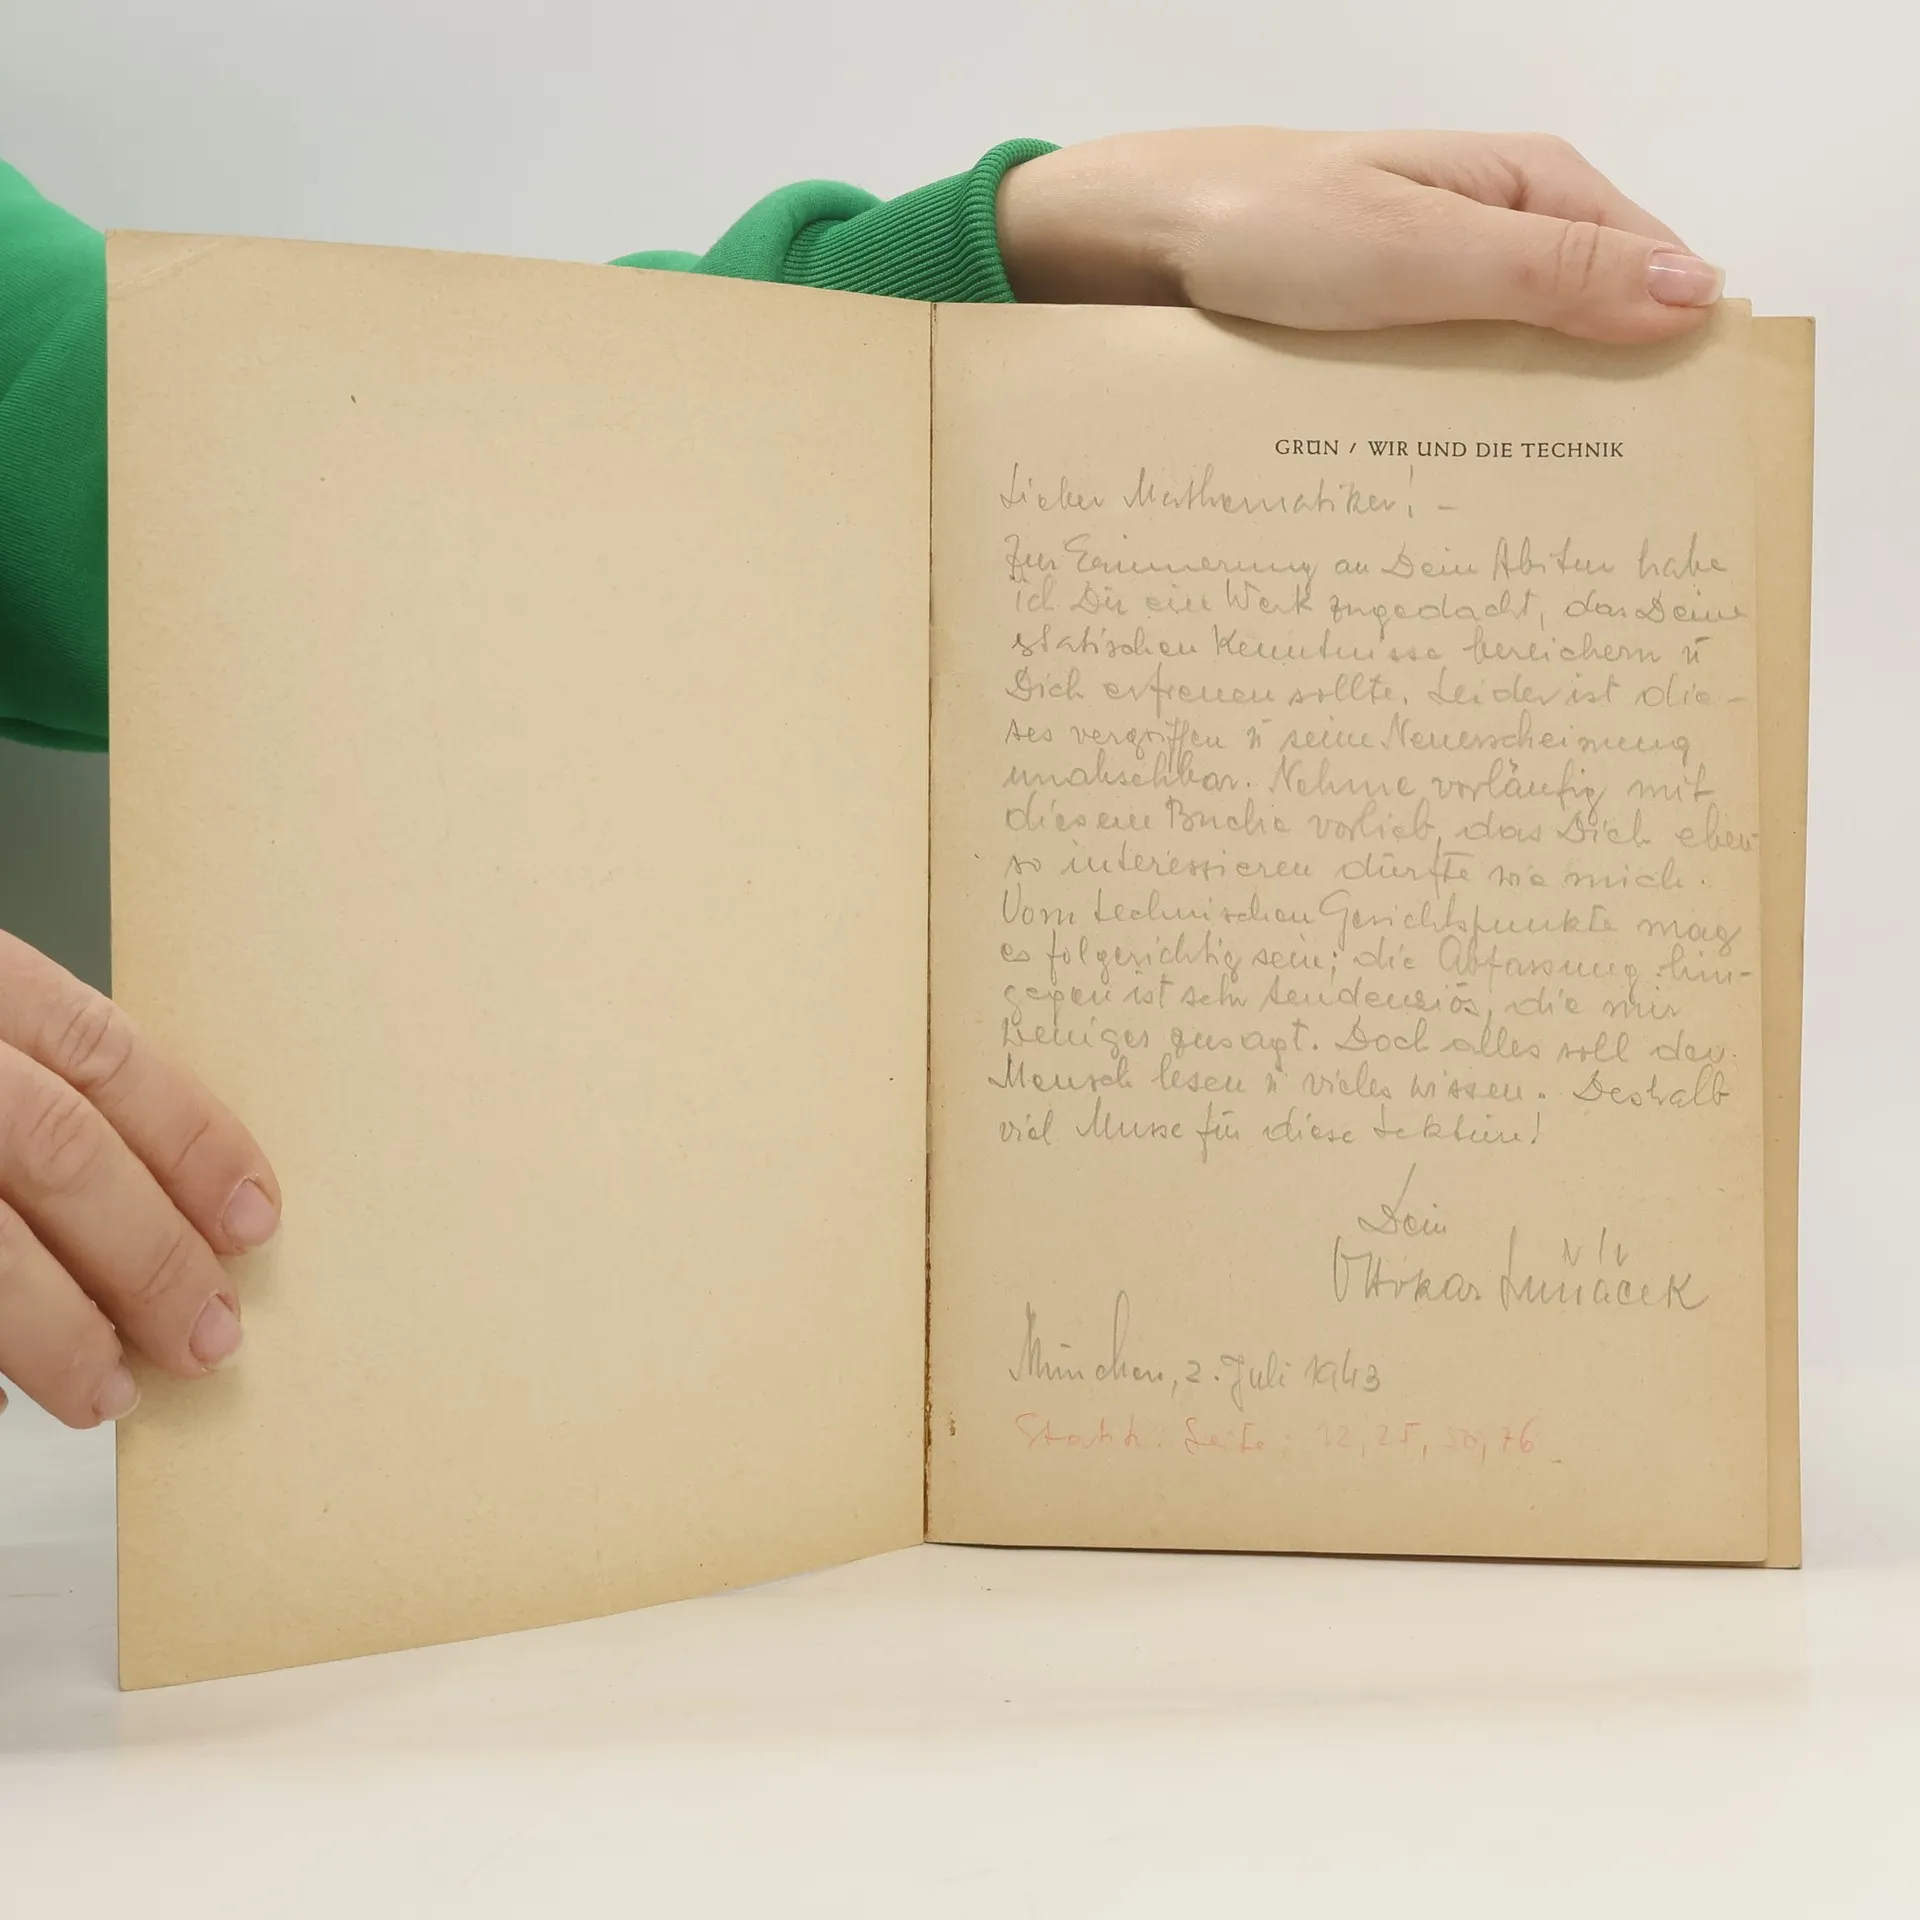 GRÜN / WIR UND DIE TECHNIK
Lieber Mathematiker! –
Zur Erinnerung an Dein Abitur habe
ich Dir ein Werk zugedacht, das Deine
statischen Kenntnisse bereichern u
Dich erfreuen sollte. Leider ist die-
ses vergriffen u seine Neuerscheinung
unabsehbar. Nehme vorläufig mit
diesem Buche vorlieb, das Dich eben-
so interessieren dürfte wie mich.
Vom technischen Gesichtspunkte mag
es folgerichtig sein; die Abfassung hin-
gegen ist sehr tendenziös, die mir
weniger zusagt. Doch alles soll der
Mensch lesen u vieles wissen. Deshalb
viel Musse für diese Lektüre!
Dein
Ottokar
München, 2. Juli 1943
Seite: 12, 25, 50, 76